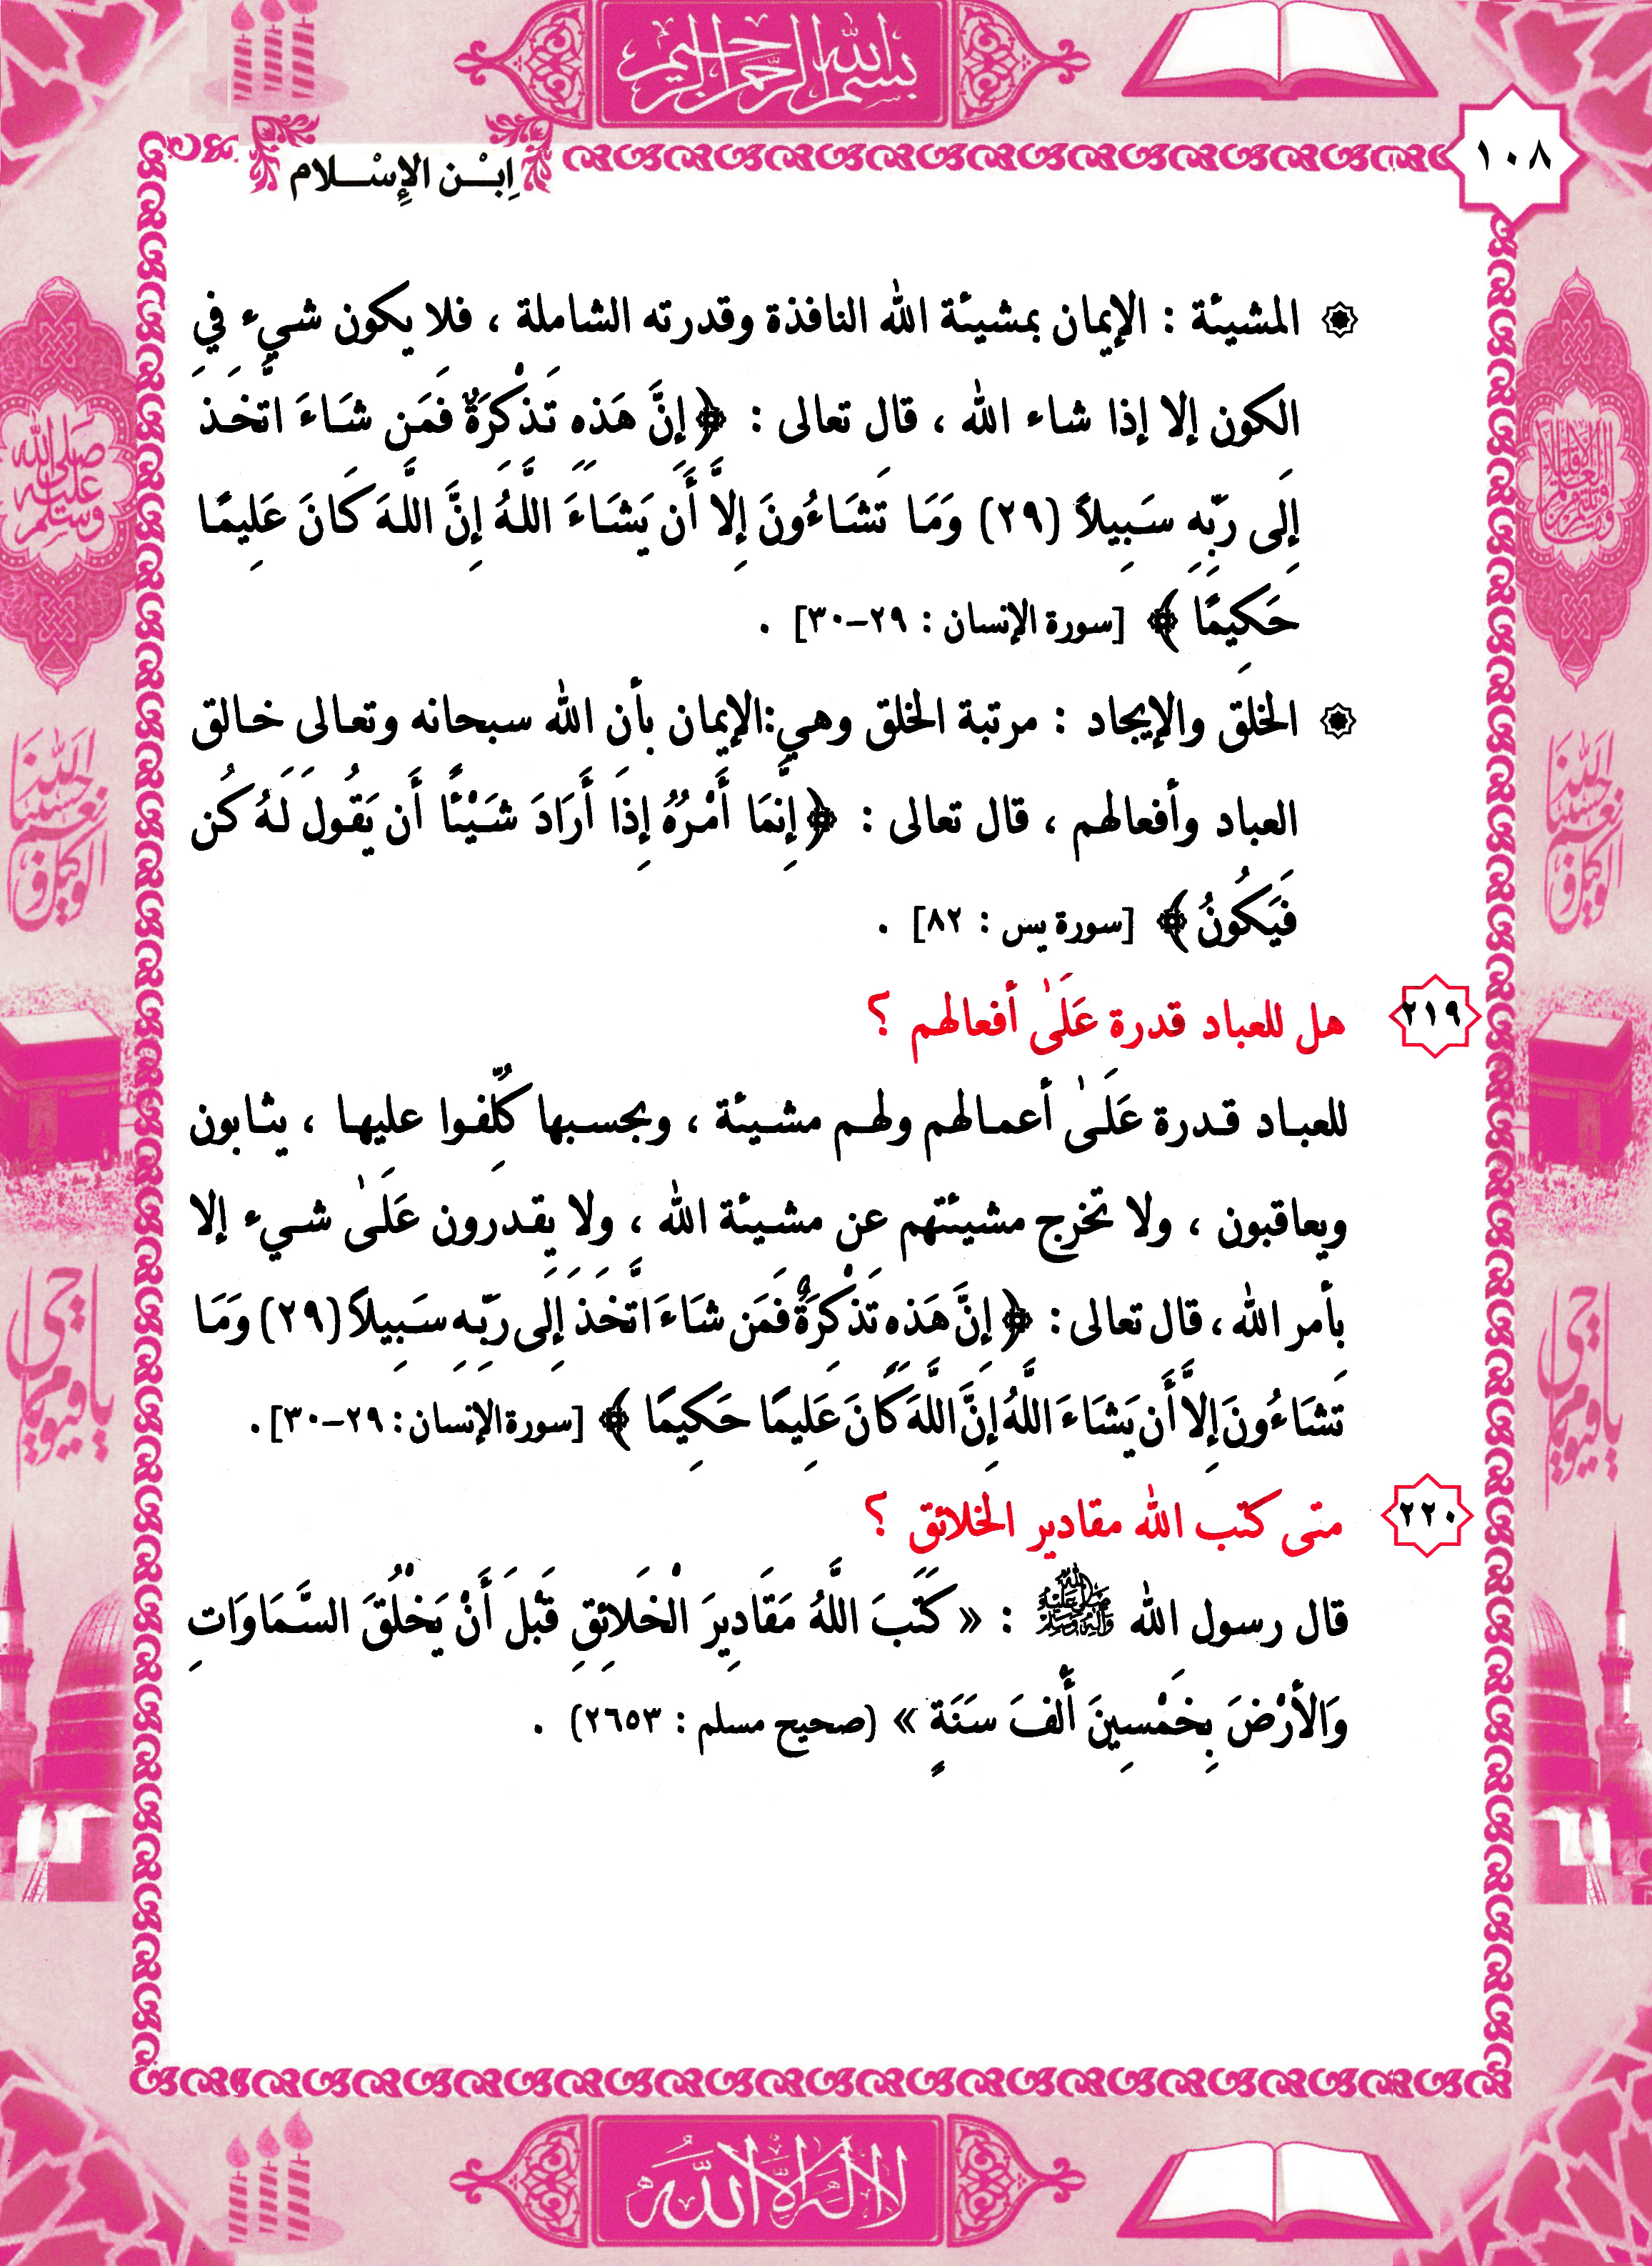 بسم الله الرحمن الرحيم
١٠٨
اِبْـن الإِسْـلام
المشيئة : الإيمان بمشيئة الله النافذة وقدرته الشاملة ، فلا يكون شيء فِي
الكون إلا إذا شاء الله ، قال تعالى : ﴿ إِنَّ هَذِهِ تَذْكِرَةٌ فَمَن شَاءَ اتَّخَذَ
إِلَى رَبِّهِ سَبِيلاً (٢٩) وَمَا تَشَاءُونَ إِلاَّ أَن يَشَاءَ اللَّهُ إِنَّ اللَّهَ كَانَ عَلِيمًا
حَكِيمًا ﴾ [سورة الإنسان : ٢٩-٣٠] .
الخلق والإيجاد : مرتبة الخلق وهي:الإيمان بأن الله سبحانه وتعالى خالق
العباد وأفعالهم ، قال تعالى : ﴿ إِنَّمَا أَمْرُهُ إِذَا أَرَادَ شَيْئًا أَن يَقُولَ لَهُ كُن
فَيَكُونُ ﴾ [سورة يس : ٨٢] .
٢١٩ هل للعباد قدرة عَلَىٰ أفعالهم ؟
للعباد قدرة عَلَىٰ أعمالهم ولهم مشيئة ، وبحسبها كُلِّفوا عليها ، يثابون
ويعاقبون ، ولا تخرج مشيئتهم عن مشيئة الله ، ولا يقدرون عَلَىٰ شيء إلا
بأمر الله ، قال تعالى : ﴿ إِنَّ هَذِهِ تَذْكِرَةٌ فَمَن شَاءَ اتَّخَذَ إِلَى رَبِّهِ سَبِيلاً (٢٩) وَمَا
تَشَاءُونَ إِلاَّ أَن يَشَاءَ اللَّهُ إِنَّ اللَّهَ كَانَ عَلِيمًا حَكِيمًا ﴾ [سورة الإنسان : ٢٩-٣٠] .
٢٢٠ متى كتب الله مقادير الخلائق ؟
قال رسول الله ﷺ : « كَتَبَ اللَّهُ مَقَادِيرَ الْخَلائِقِ قَبْلَ أَنْ يَخْلُقَ السَّمَاوَاتِ
وَالأَرْضَ بِخَمْسِينَ أَلفَ سَنَةٍ » (صحيح مسلم : ٢٦٥٣) .
صلى الله عليه وسلم
حسبنا الله ونعم الوكيل
يا حي يا قيوم
حسبنا الله ونعم الوكيل
يا حي يا قيوم
لا إله إلا الله